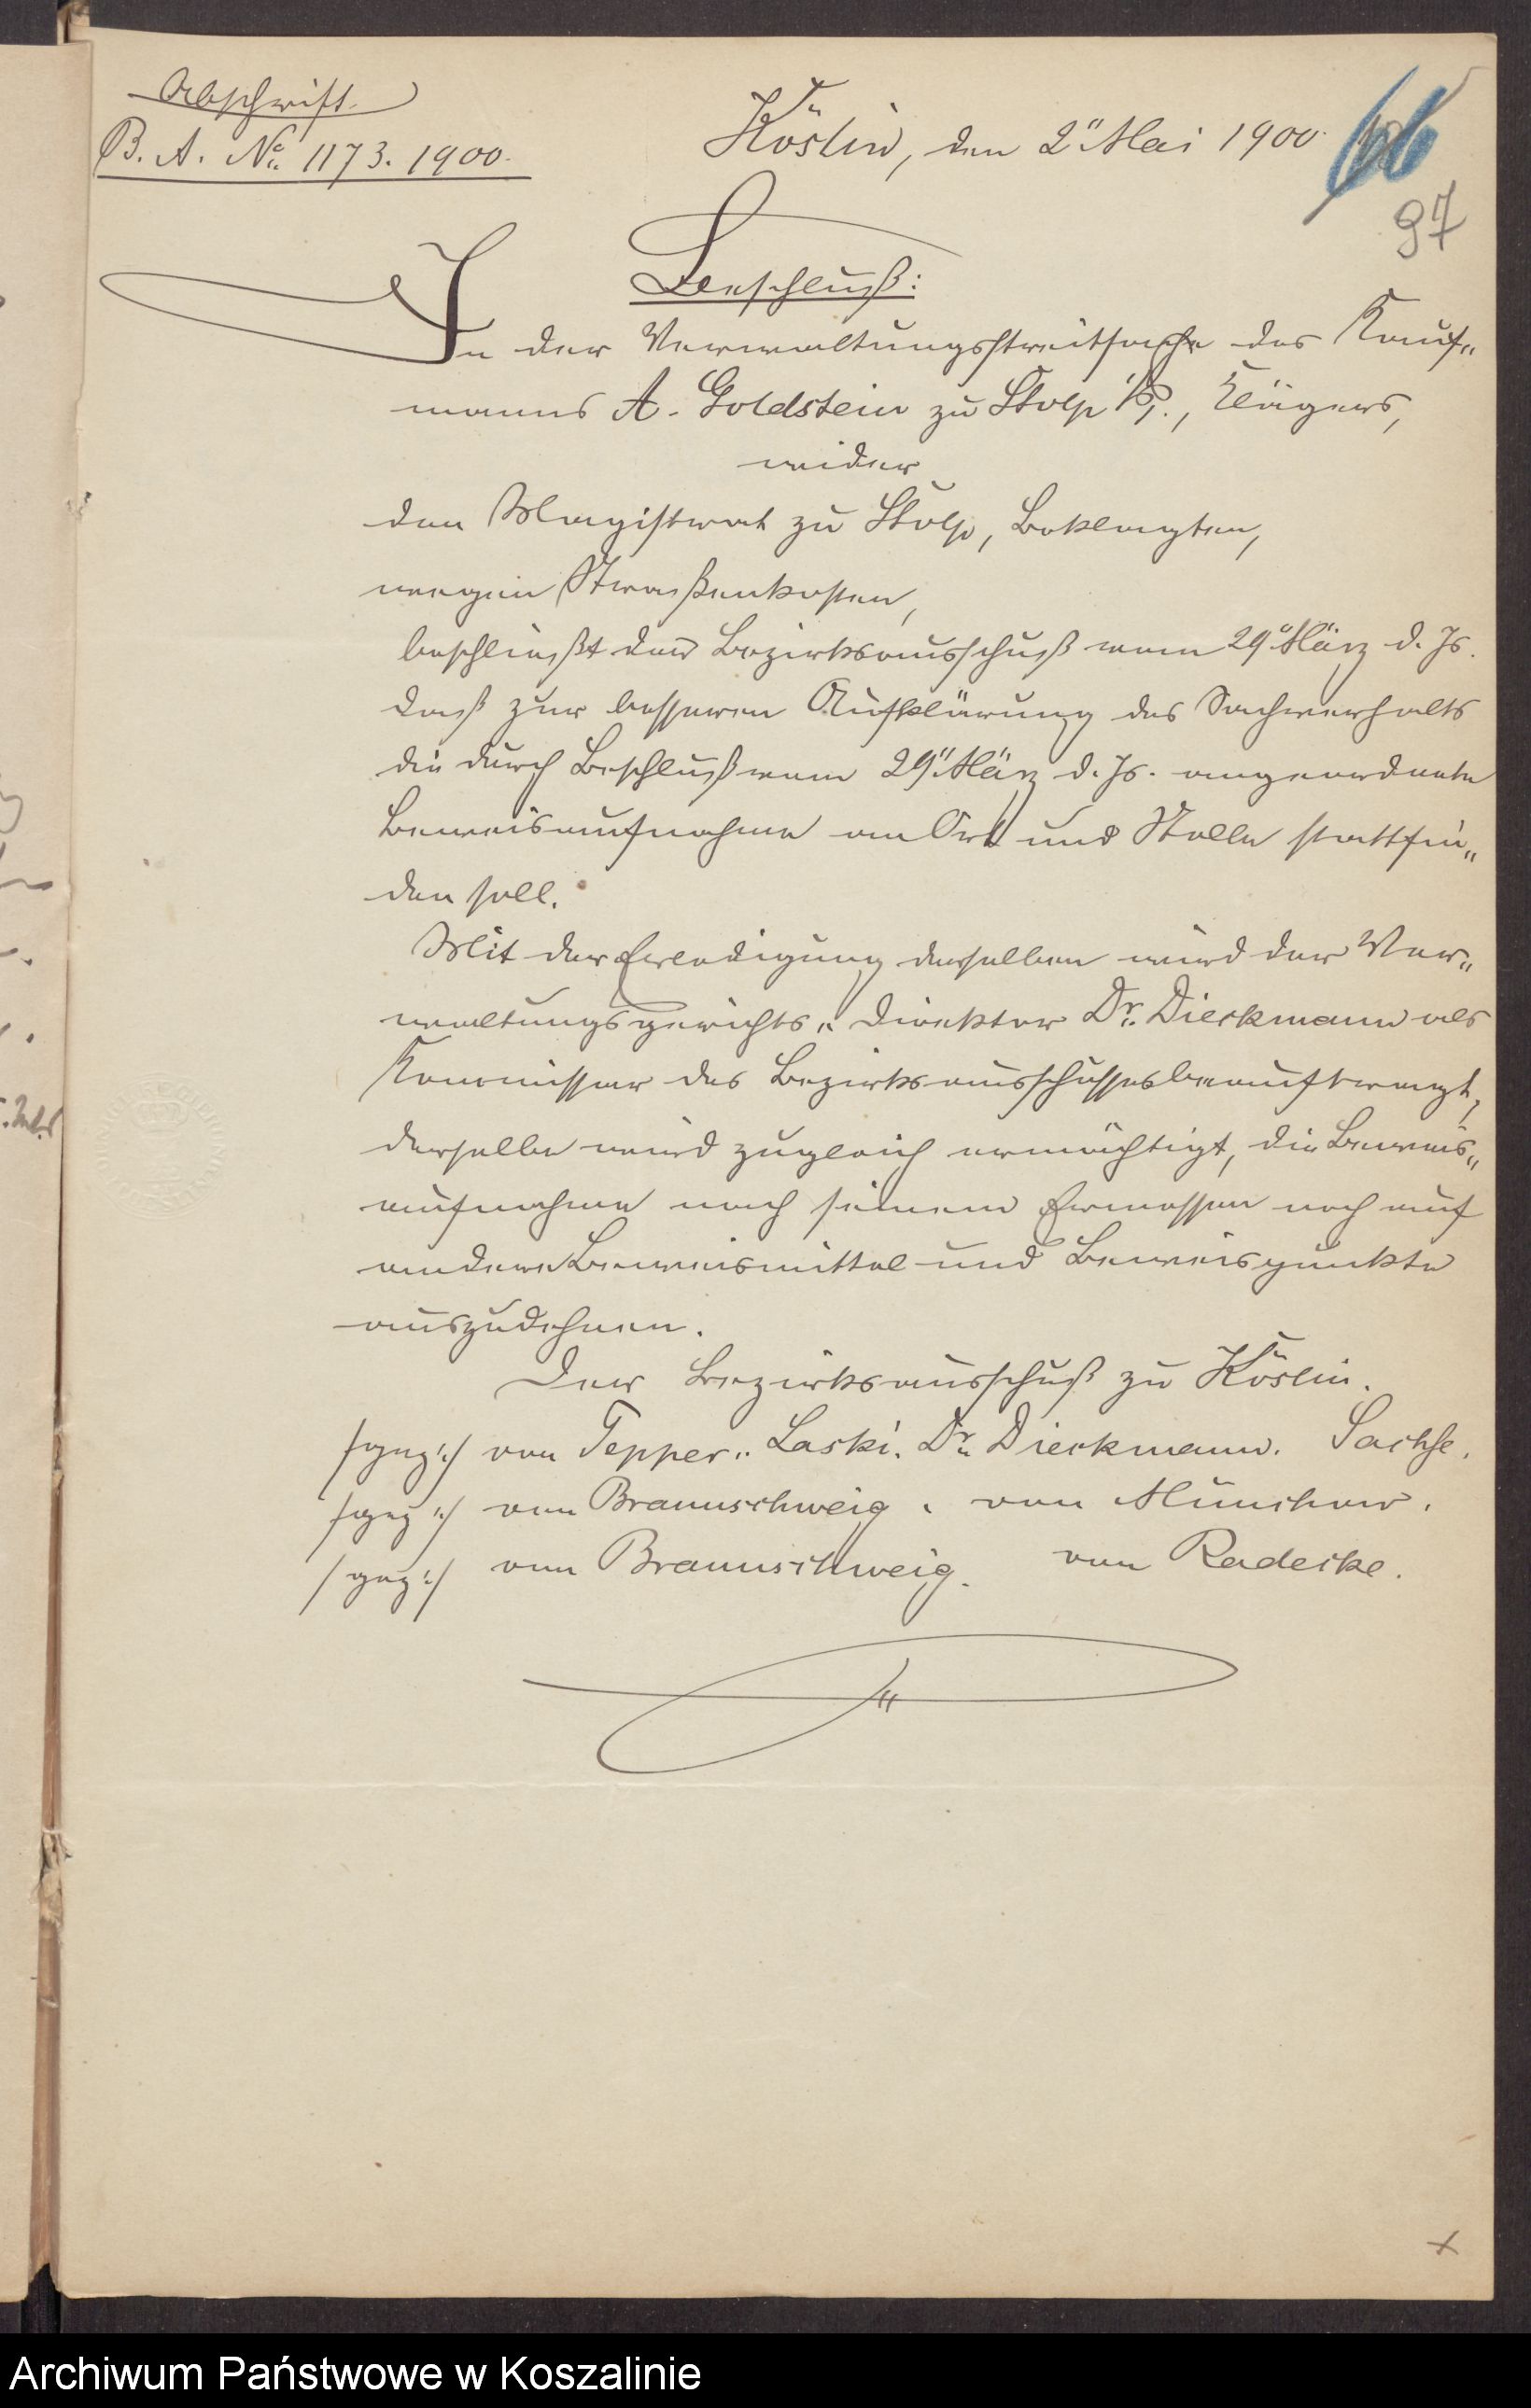 Abschrift.
B. A. No. 1173. 1900.
Köslin, den 2" Mai 1900.
66
97
Beschluß:
In der Verwaltungsstreitsache des Kauf„
manns A. Goldstein zu Stolp i/P., Klägers,
wider
den Magistrat zu Stolp, Beklagten,
wegen Straßenkosten,
beschließt der Bezirksausschuß vom 29" März d. Js.
daß zur besseren Aufklärung des Sachverhalts
die durch Beschluß vom 29" März d. Js. angeordnete
Beweisaufnahme an Ort und Stelle stattfin„
den soll.
Mit der Erledigung derselben wird der Ver„
waltungsgerichts„Direktor Dr. Dieckmann als
Kommissar des Bezirksausschusses beauftragt,
derselbe wird zugleich ermächtigt, die Beweis„
aufnahme nach seinem Ermessen noch auf
andere Beweismittel und Beweispunkte
auszudehnen.
Der Bezirksausschuß zu Köslin.
/gez:/ von Tepper„Laski. Dr. Dieckmann. Sachse.
/gez:/ von Braunschweig. von Münchow.
/gez:/ von Braunschweig. von Radecke.
Archiwum Państwowe w Koszalinie